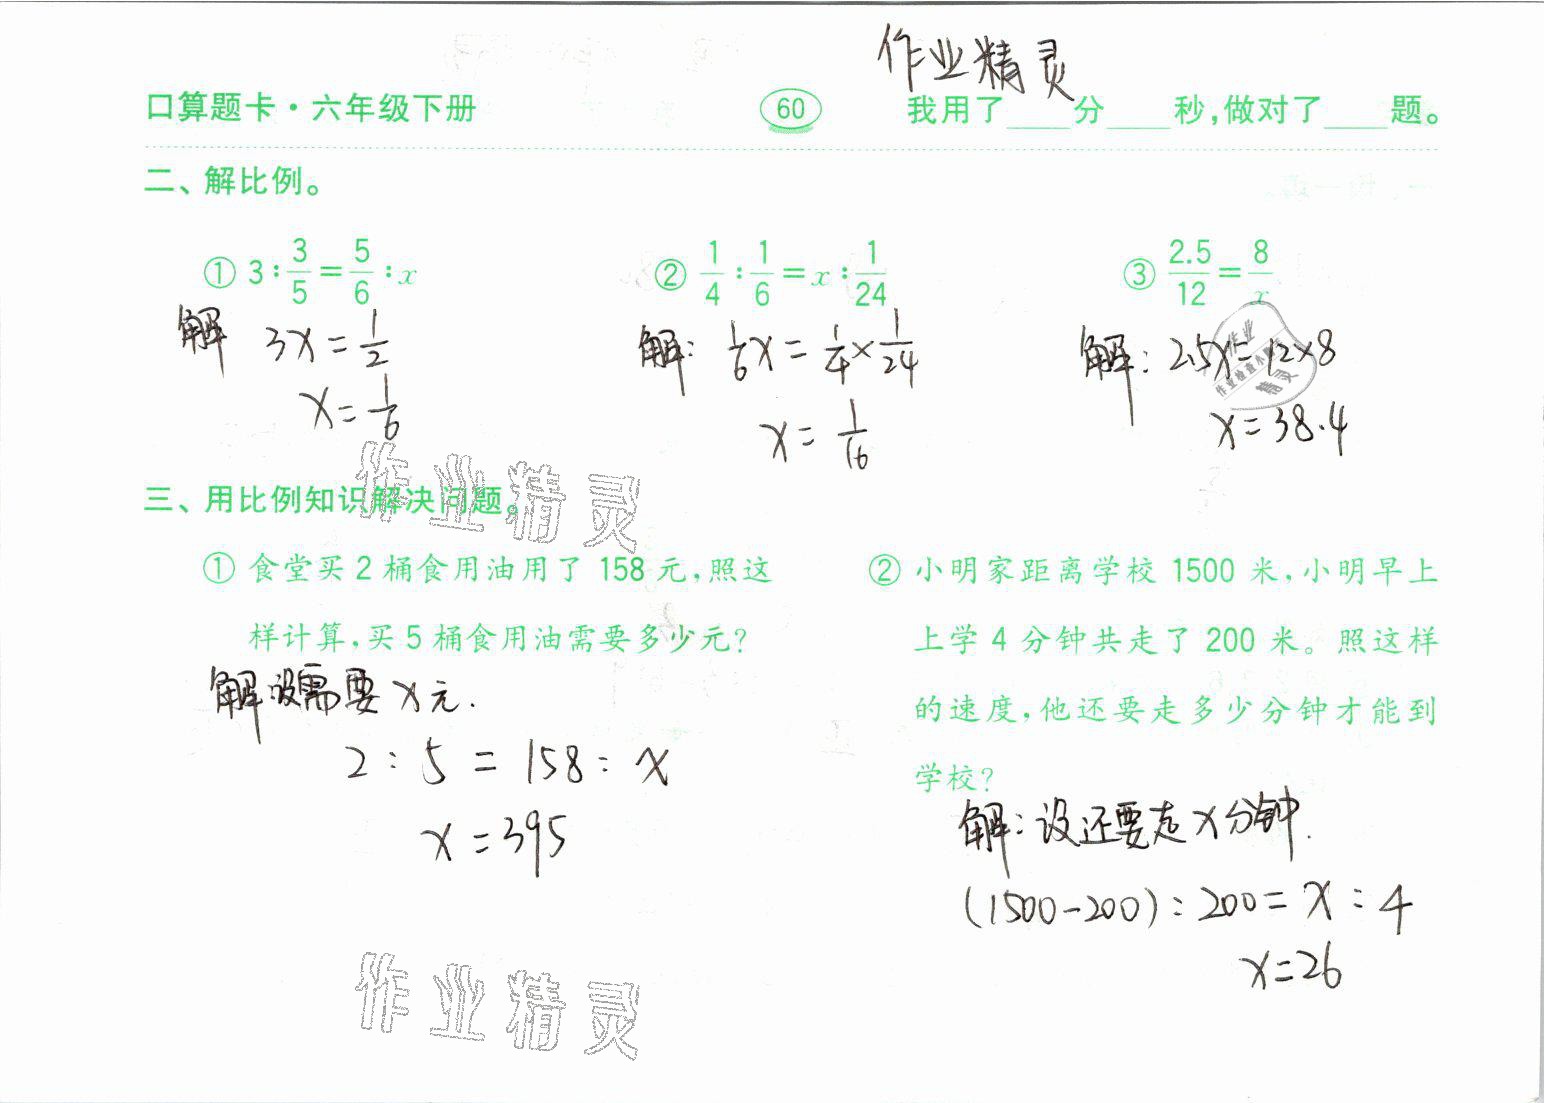 作业精灵
口算题卡·六年级下册 60 我用了____分____秒,做对了____题。
二、解比例。
① 3:3/5=5/6:x ② 1/4:1/6=x:1/24 ③ 2.5/12=8/x
解 3x=1/2 解: 1/6x=1/4×1/24 解: 2.5x=12×8
x=1/6 x=1/16 x=38.4
作业
作业检查小助手
精灵
作业精灵
三、用比例知识解决问题。
① 食堂买2桶食用油用了158元,照这
样计算,买5桶食用油需要多少元?
解设需要x元.
2:5=158:x
x=395
② 小明家距离学校1500米,小明早上
上学4分钟共走了200米。照这样
的速度,他还要走多少分钟才能到
学校?
解:设还要走x分钟.
(1500-200):200=x:4
x=26
作业精灵